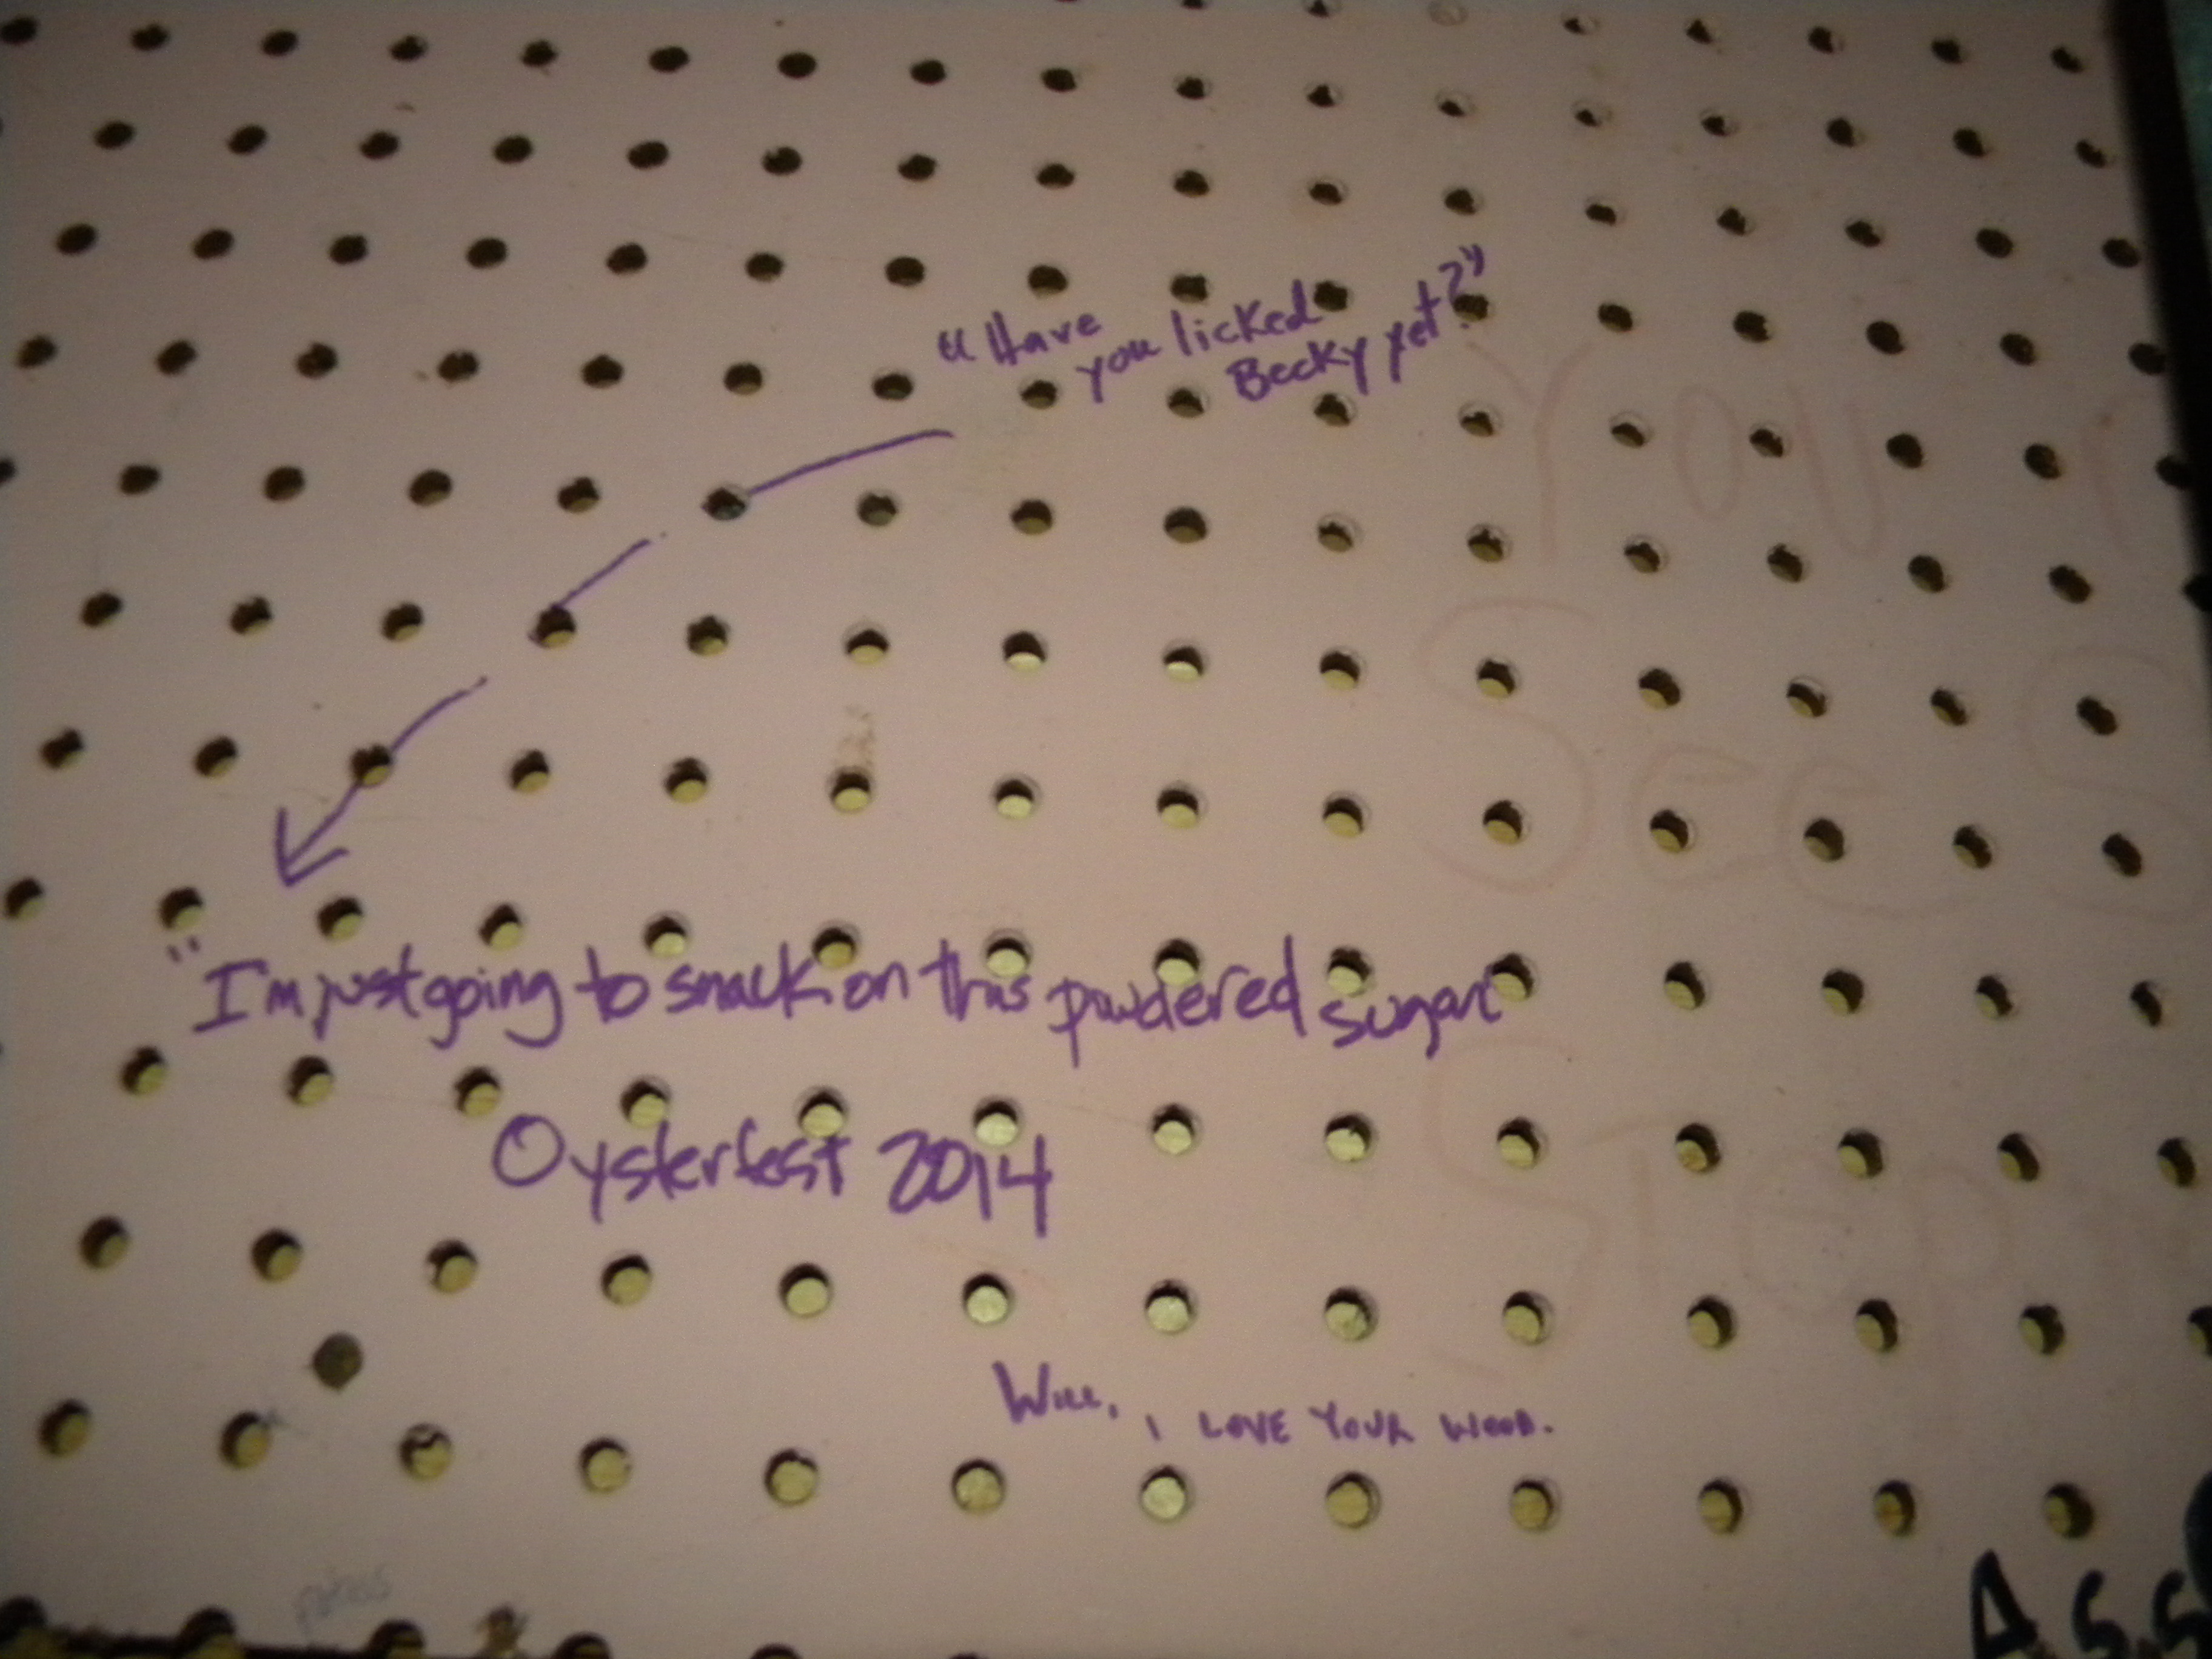 "Have
you licked
Becky yet?"
YOU
See
"I'm just going to snack on this powdered sugar"
Oysterfest 2014
Will, I LOVE YOUR WOOD.
Ass